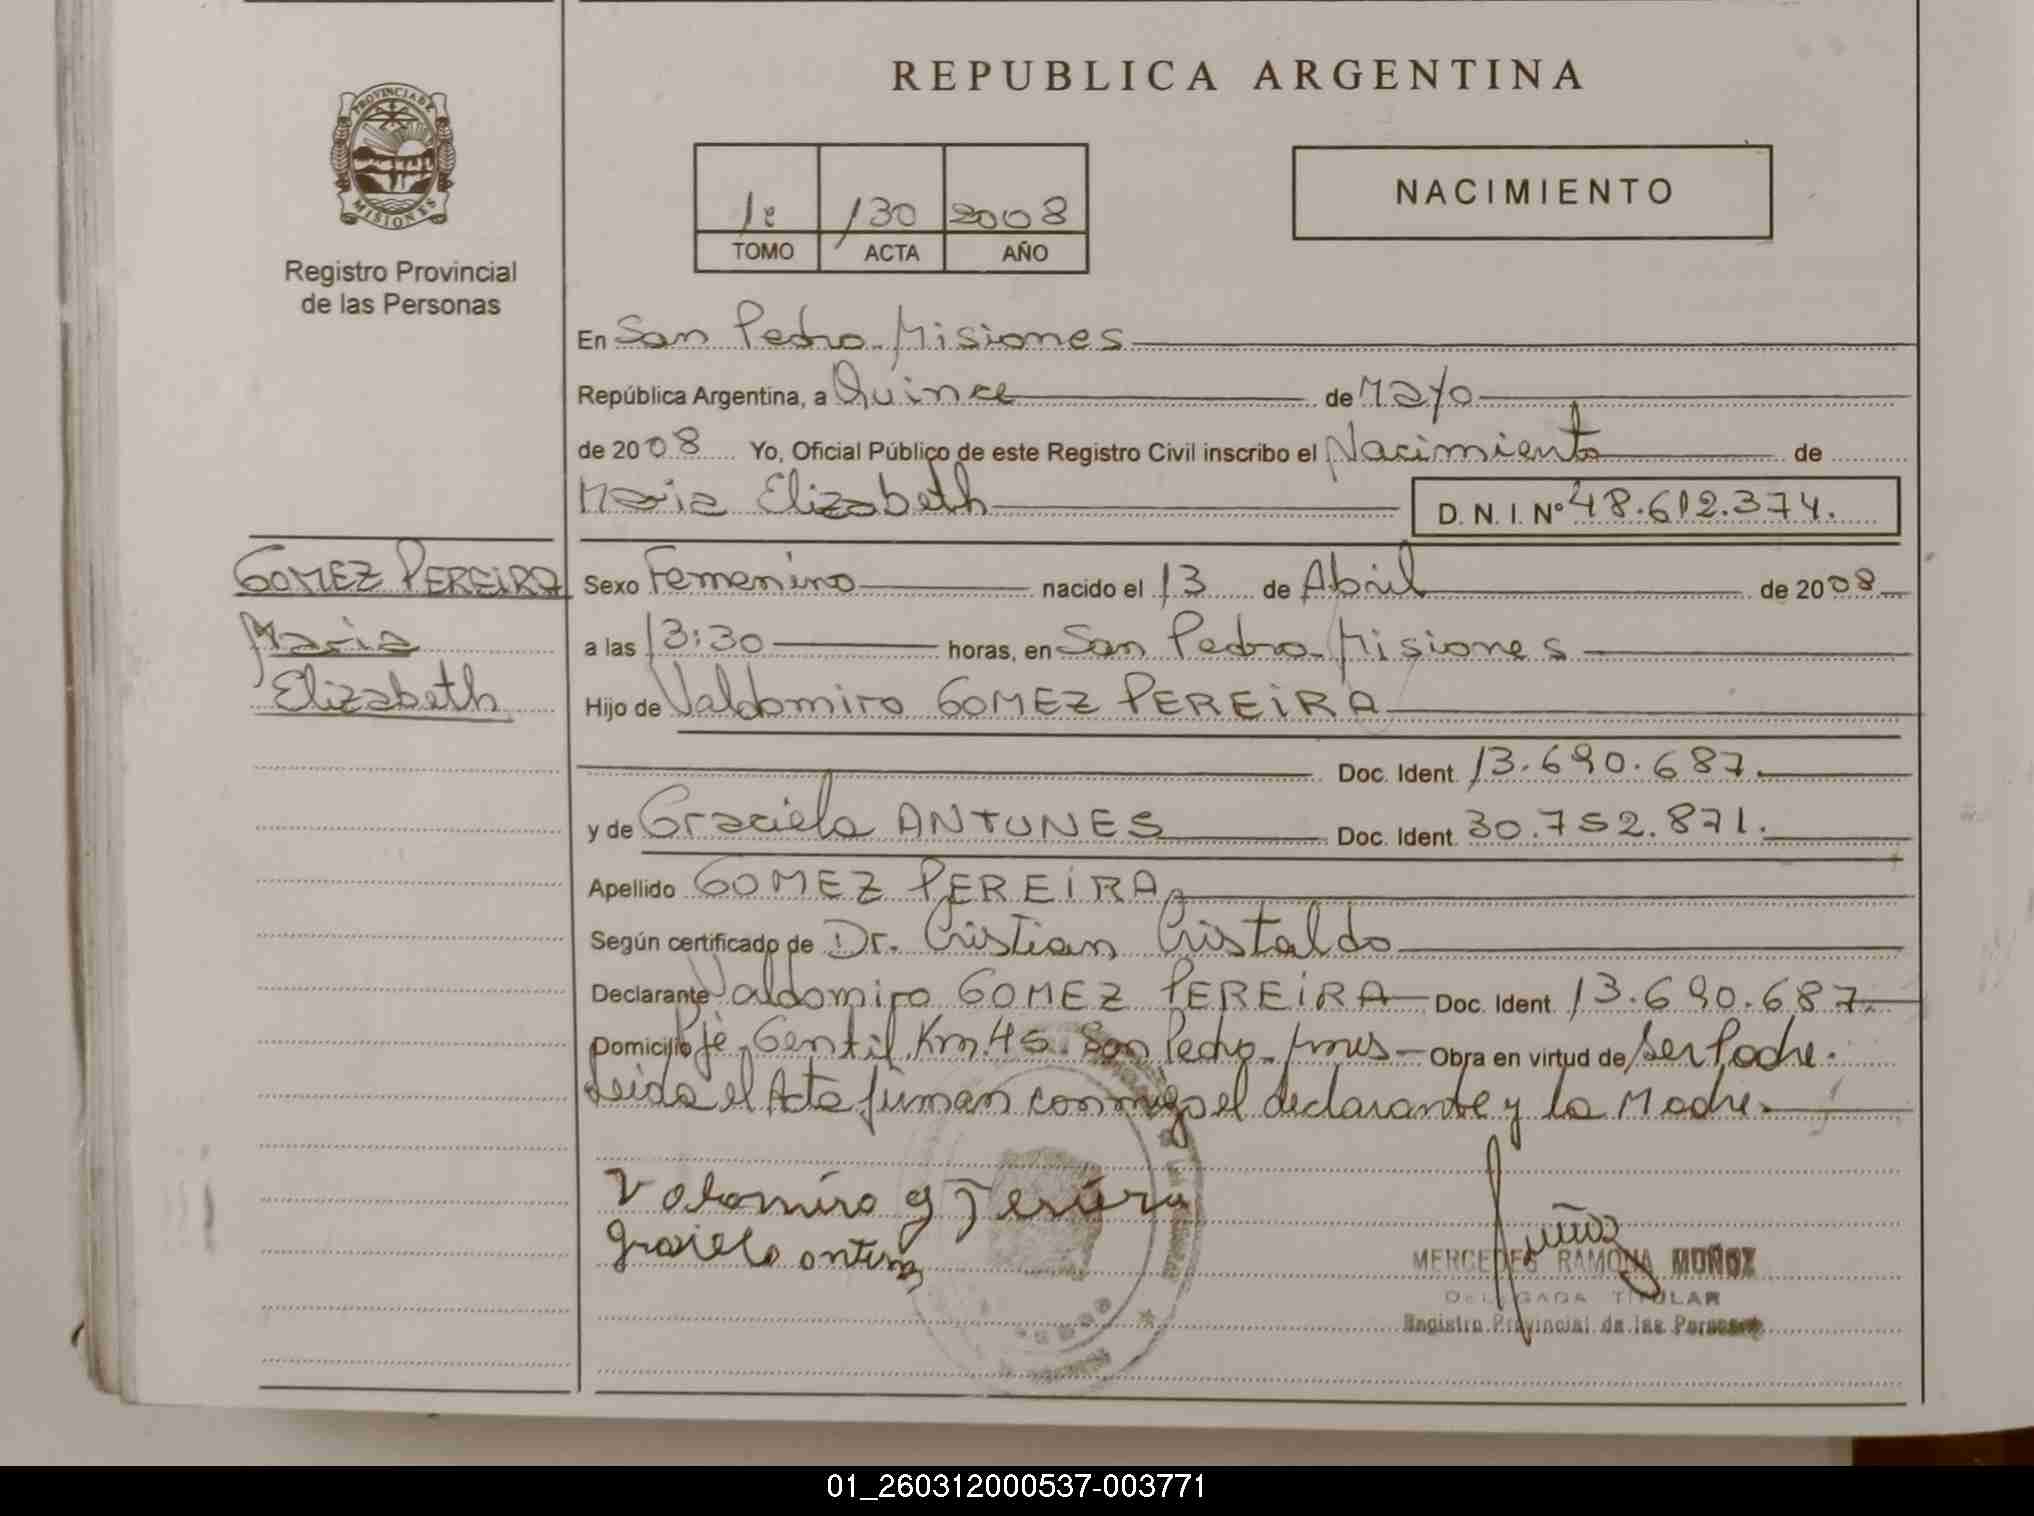 REPUBLICA ARGENTINA
PROVINCIA DE
MISIONES
Registro Provincial
de las Personas
1º 130 2008
TOMO ACTA AÑO
NACIMIENTO
En San Pedro Misiones
República Argentina, a Quince de Mayo
de 2008 Yo, Oficial Público de este Registro Civil inscribo el Nacimiento de
Maria Elizabeth D. N. I. Nº 48.612.374.
GOMEZ PEREIRA
Maria
Elizabeth
Sexo Femenino nacido el 13 de Abril de 2008
a las 13:30 horas, en San Pedro Misiones
Hijo de Valdomiro GOMEZ PEREIRA
Doc. Ident. 13.690.687.
y de Graciela ANTUNES Doc. Ident. 30.752.871.
Apellido GOMEZ PEREIRA
Según certificado de Dr. Cristian Cristaldo
Declarante Valdomiro GOMEZ PEREIRA Doc. Ident. 13.690.687.
Domicilio Pje. Gentil Km. 45. San Pedro Mnes Obra en virtud de Ser Padre.
Leida el Acta firman conmigo el declarante y la Madre.
MERCEDES RAMONA MUÑOZ
DELEGADA TITULAR
Registro Provincial de las Personas
01_260312000537-003771